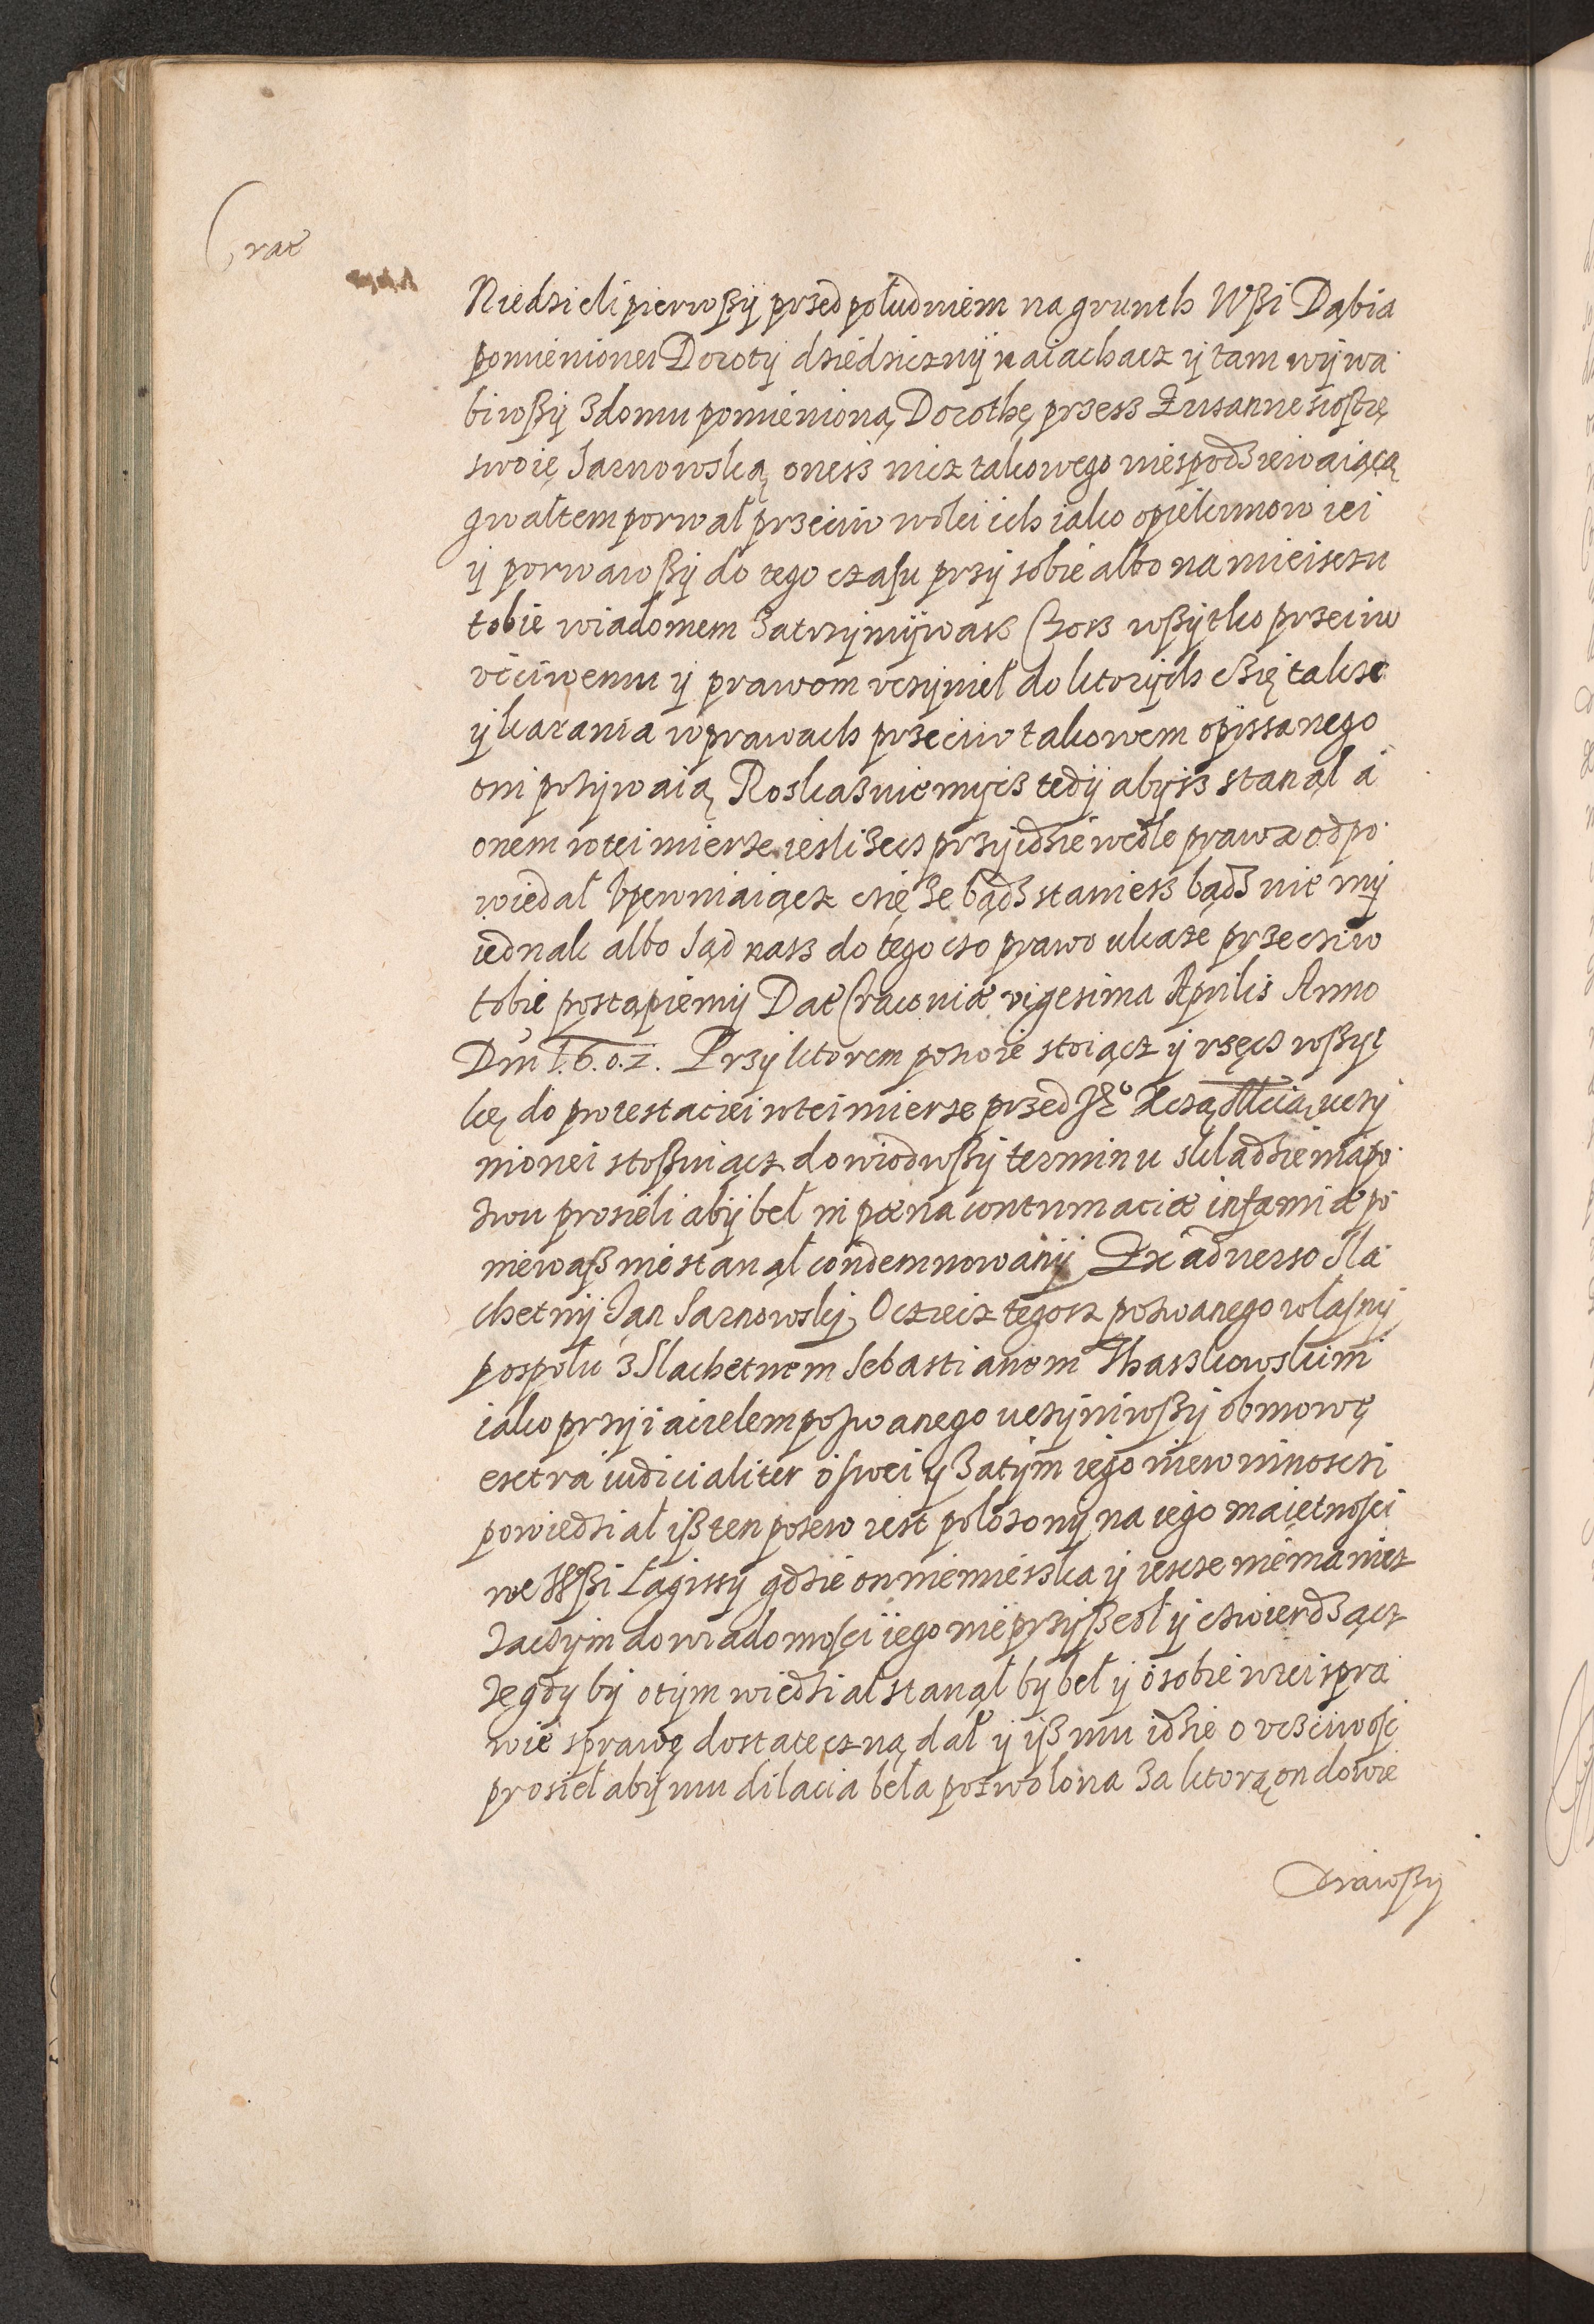 Crac
Niedzieli pierwßÿ przed południem na grunth Wßi Dąbia
pomienionei Dorotÿ dziedzicznÿ naiachacz ÿ tam wÿwa
biwßÿ z domu pomienioną Dorothę przesz Zusannę siostrę
swoię Sarnowską onesz nicz takowego niespodziewaiącą
gwałtem porwał przeciw wolei ich iako opiekunow iei
ÿ porwawßÿ do tego czasu przÿ sobie albo na mieisczu
tobie wiadomem zatrzÿmÿwasz Czosz wßÿtko przeciw
vcciwemu ÿ prawom vczÿnieł do ktorÿch czię takze
ÿ karania w prawach przeciw takowem opissanego
oni pozÿwaią Roskazuiemÿcz tedÿ abÿsz stanął á
onem w tei mierze iesli zecz przÿidzie wedle prawa odpo
wiedał Vpewniaiącz czię ze bądz staniesz bądz nie mÿ
iednak albo Sąd nasz do tego czo prawo ukaże przecziw
tobie postąpiemÿ Dat Cracoviæ vigesima Aprilis Anno
Dm̃ 1.6.0.2. Przÿ ktorem pozwie stoiącz ÿ rzęcz wßÿt
kę do protestaciei w tei mierze przed uczÿ
nionei stoßuiącz dowiodwßÿ terminu składziemapo
zwu prosieli abÿ beł in pœna contumaciæ infamiæ po
niewaß nie stanął condemnowanÿ Ex adverso Sla
chetnÿ Jan Sarnowskÿ Oczciecz tegosz pozwanego własnÿ
pospołu z Slachetnem Sebastianem Thaszkowskim
iako przÿiacielem pozwanego uczÿniwßÿ obmowę
extra iudicialiter o swei ÿ zatÿm iego niewinnosczi
powiedział iß ten pozew iest położonÿ na iego maietnosci
we Wßi Łagissÿ gdzie on niemieszka ÿ iescze niema nicz
zaczÿm do wiadomości iego nie przÿßedł ÿ czwierdzącz
ze gdÿ bÿ o tÿm wiedział stanął bÿ beł ÿ o sobie w tei spra
wie sprawę dostateczną dał ÿ iß mu idzie o vczciwość
prosieł abÿ mu dilacia beła pozwolona za ktorą on dowie
dziawßÿ